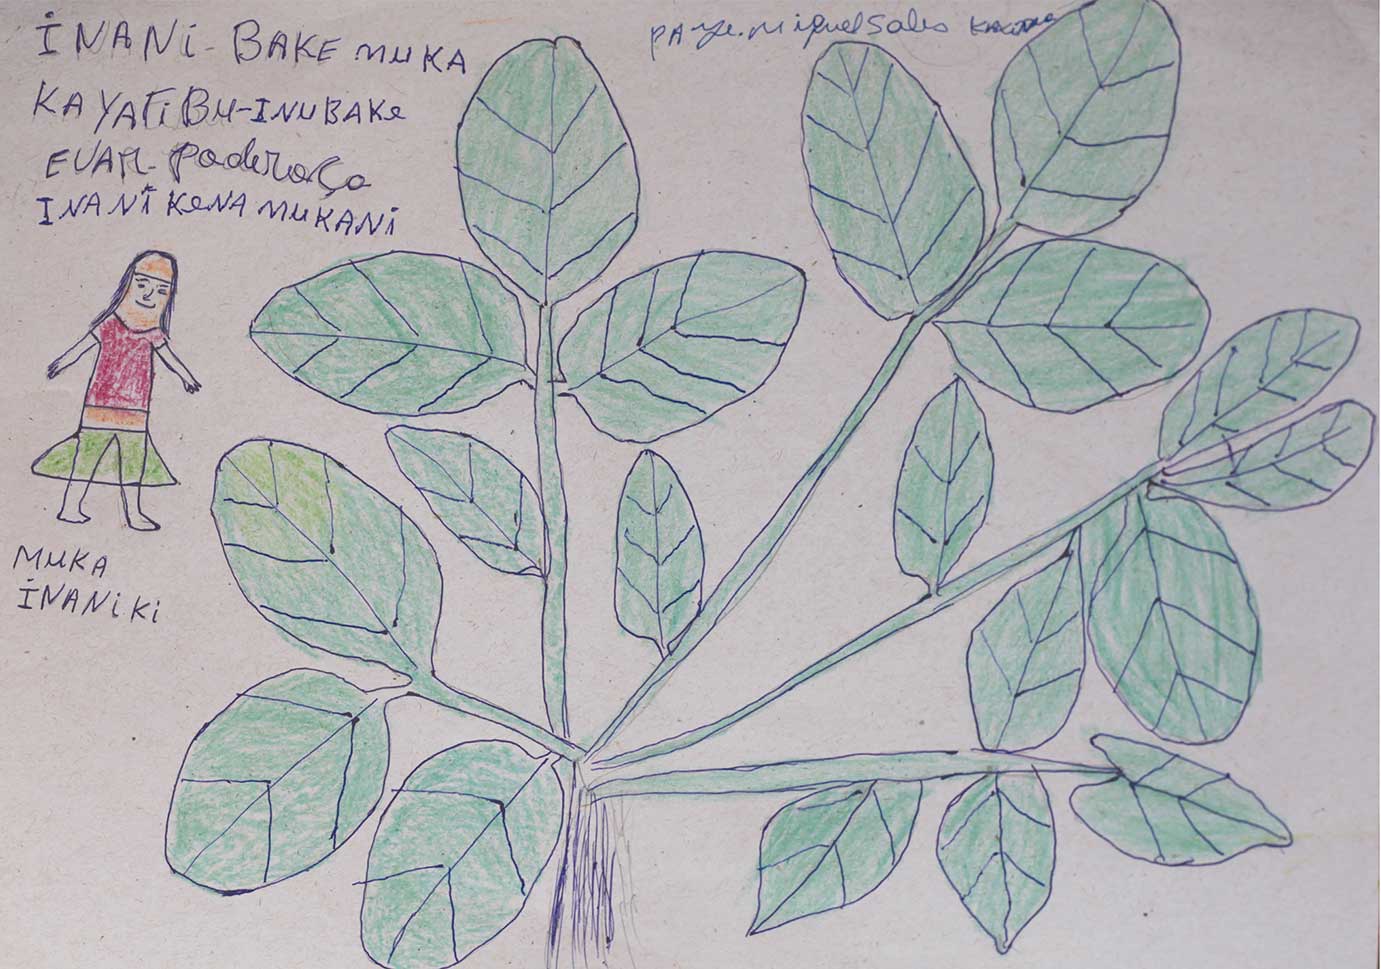 İNANİ-BAKE MUKA
KAYATİBU-INUBAKE
Poderoço
INANİ KENA MUKANİ
paje. Miguel Sales
MUKA
İNANİ Ki